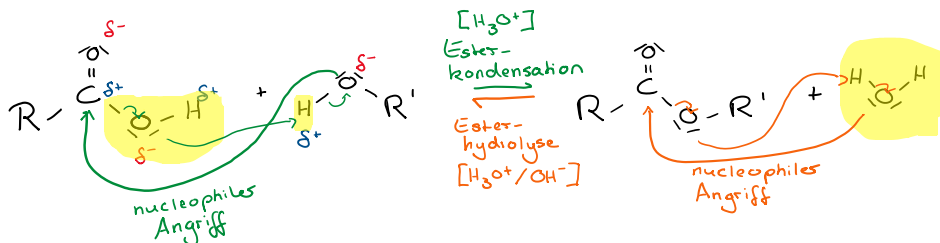 δ-
O
C
δ+
R
O
δ-
H
δ+
+
H
δ+
O
δ-
R'
nucleophiler
Angriff
[H₃O⁺]
Ester-
kondensation
Ester-
hydrolyse
[H₃O⁺/OH⁻]
O
C
R
O
R'
+
H
O
H
nucleophiler
Angriff